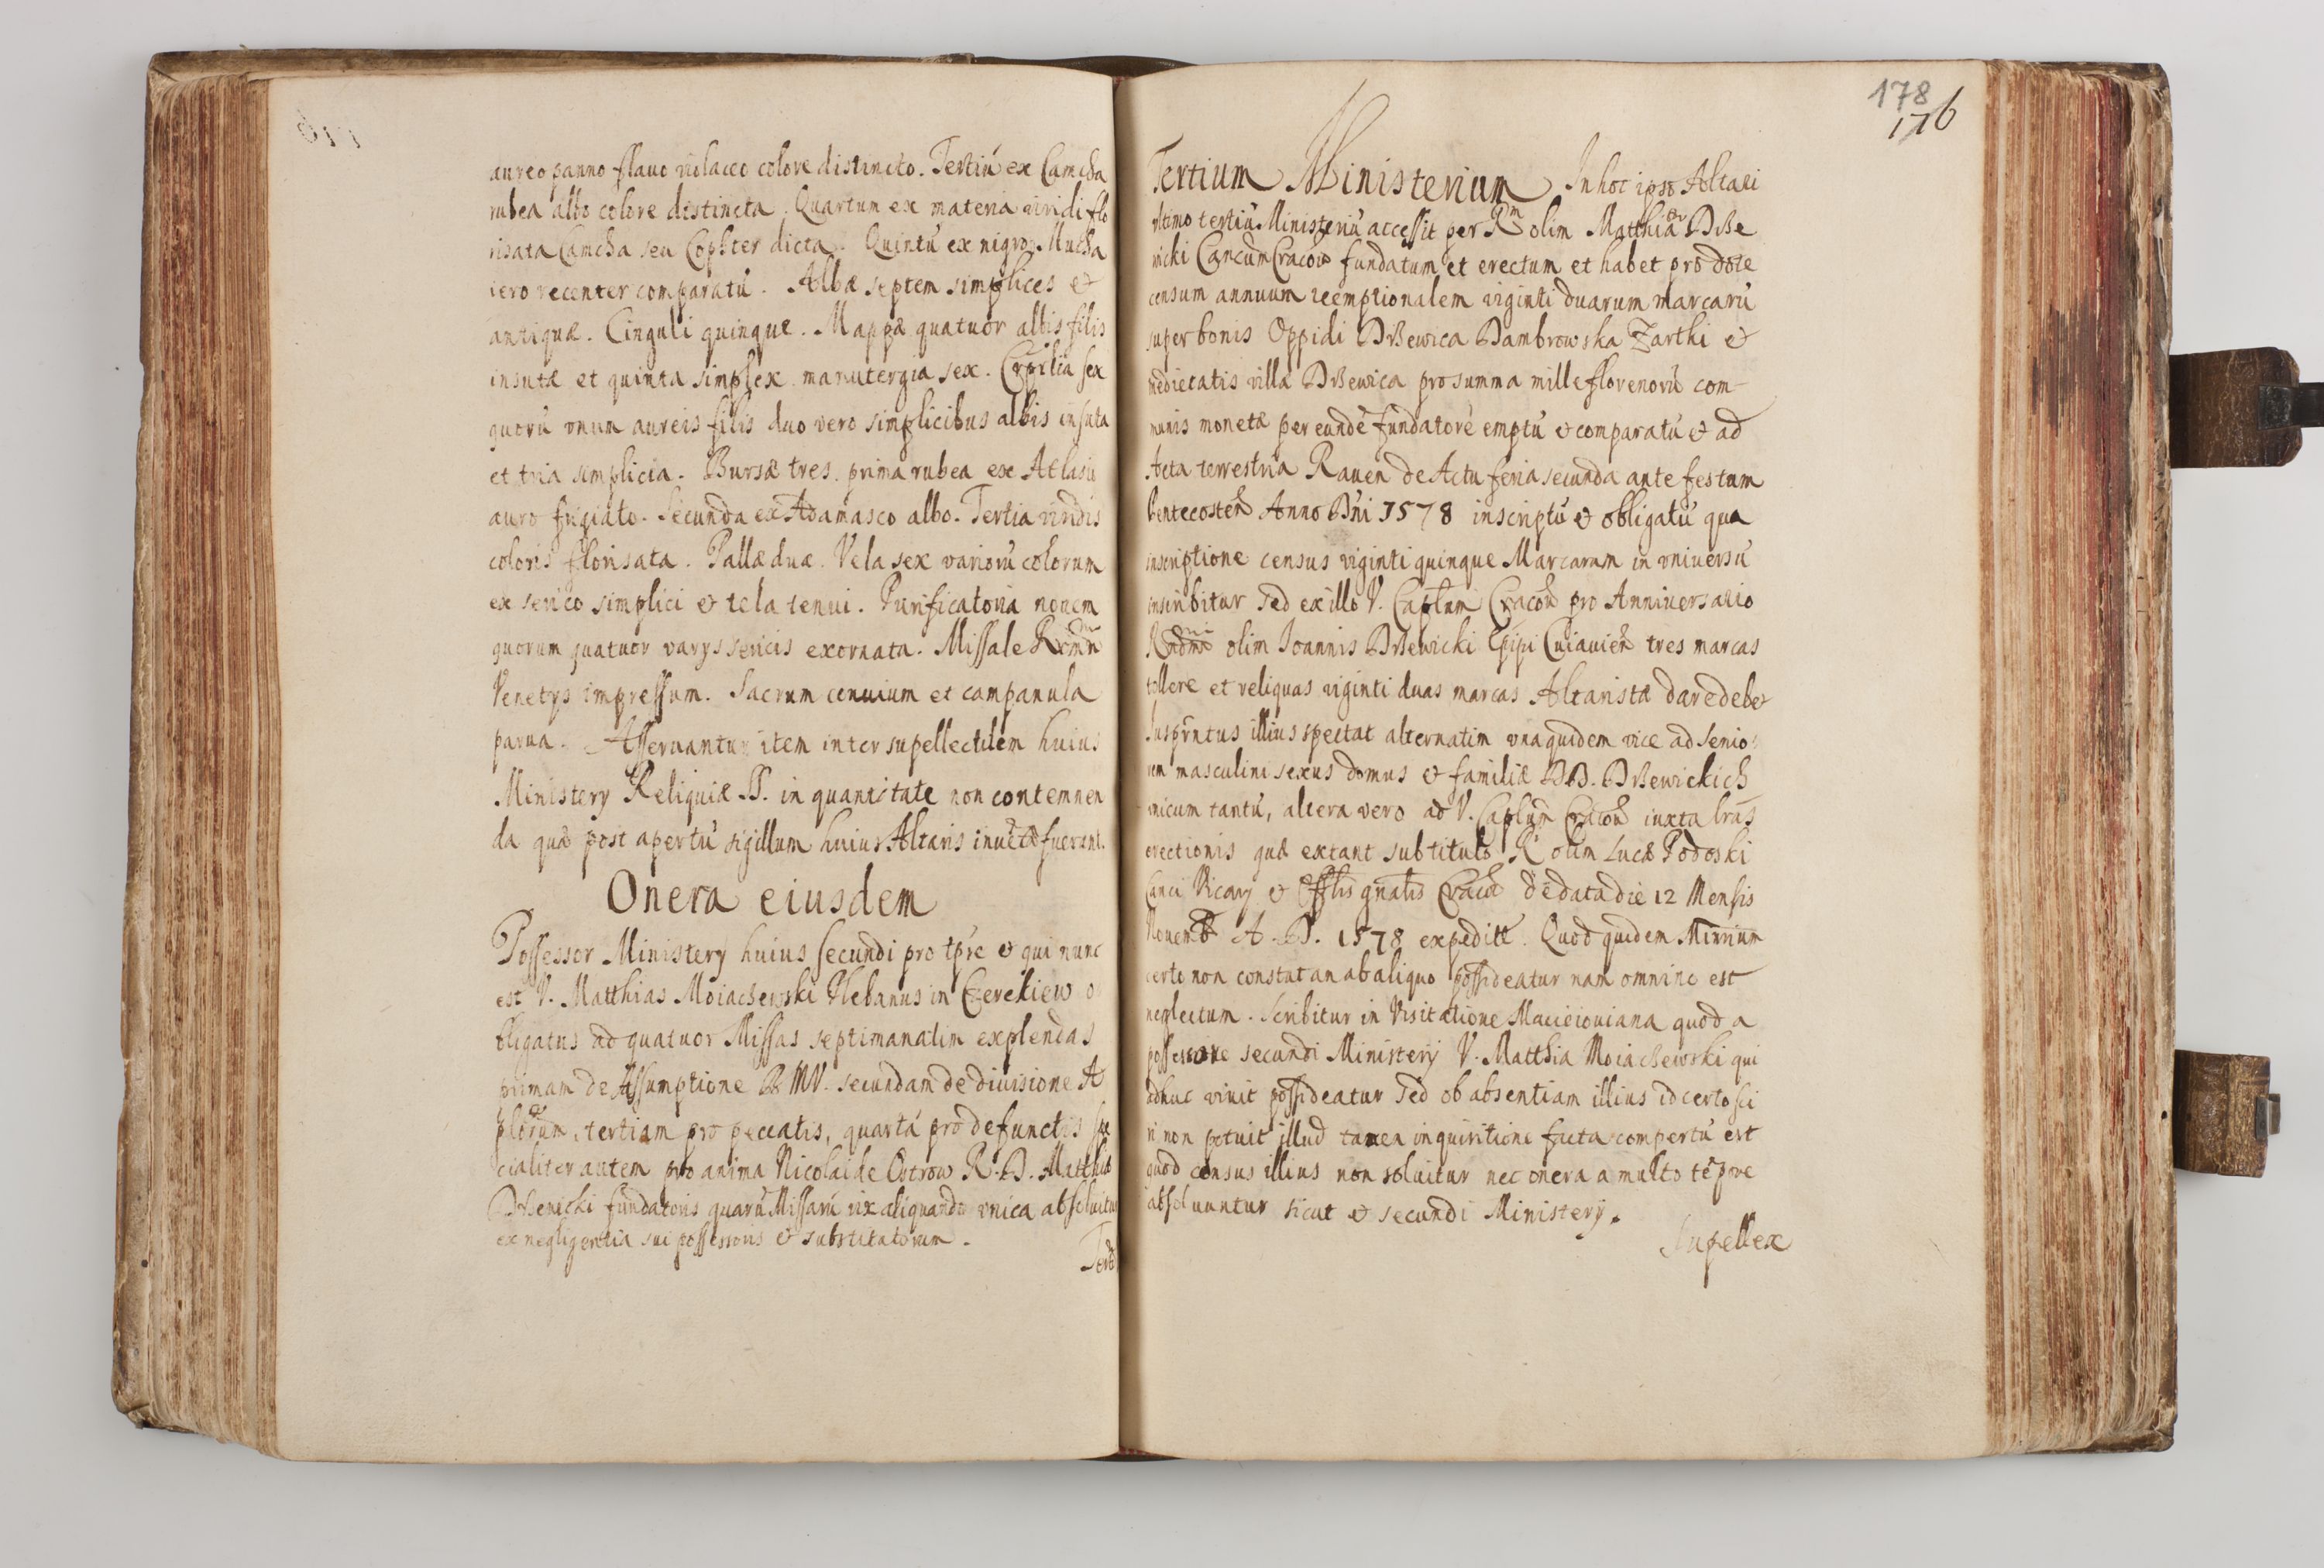 aureo panno flauo violaceo colore distincto. Tertiú ex Camcha
rubea albo colore distincta. Quartum ex materia viridi flo
risata Camcha seu Copter dicta. Quintú ex nigro Mucha
iero recenter comparatú. Albæ septem simplices et
antiquæ. Cinguli quinque. Mappæ quatuor albis filis
insutæ et quinta simplex manutergia sex. Corplia sex
quorú vnum aureis filis duo vero simplicibus albis insuta
et tria simplicia. Bursæ tres. prima rubea ex Atlasio
auro frigiato. Secunda ex Adamasco albo. Tertia viridis
coloris florisata. Pallæ duæ. Vela sex variorú colorum
ex serico simplici et tela tenui. Purificatoria nouem
quorum quatuor varys sericis exornata. Missale Romũ
Venetys impressum. Sacrum conuiuium et campanula
parua. Asseruantur item inter supellectilem huius
Ministery Reliquiæ SS. in quantitate non contemnen
da quæ post apertú sigillum huius Altaris inuētæ fuerunt.
Onera eiusdem
Possessor Ministery huius secundi pro tpre et qui nunc
est V. Matthias Moiachewski Plebanus in Cerekiew o
bligatus ad quatuor Missas septimanatim explendas
primam de Assumptione B MV. secundam de diuisione A
plorum, tertiam pro peccatis, quartá pro defunctis spe
cialiter autem pro anima Nicolai de Ostrow R. D. Matthiæ
Drewicki fundatoris quarú Missarú vix aliquando vnica absoluitur
ex negligentia sui possessoris et substitutorum.
Terti
178
176
Tertium Ministerium In hoc ipso Altari
vltimo tertiú Ministeriú accessit per Rm olim Matthiā Drze
wicki Cancum Cracoũ fundatum et erectum et habet pro dote
censum annuum reemptionalem viginti duarum marcarú
super bonis Oppidi Drzewica Dambrowska Zarthi et
medietatis villæ Drzewica pro summa mille florenorú com-
munis monetæ per eundé fundatoré emptú et comparatú et ad
Acta terrestria Rauen de Actu feria secunda ante festum
Pentecosteñ Anno Dñi 1578 inscriptú et obligatú qua
inscriptione census viginti quinque Marcarum in vniuersú
inscribitur sed ex illo V. Caplum Cracoñ pro Anniuersario
Rndmi olim Ioannis Drzewicki Epipi Cuiauieñ tres marcas
tollere et reliquas viginti duas marcas Altaristæ dare debet
Iuspr̃ntus illius spectat alternatim vna quidem vice ad senio
rem masculini sexus domus et familiæ DD. Drzewickich
vnicum tantú, altera vero ad V. Caplum Cracoñ iuxta lras
erectionis quæ extant sub titulo R olim Lucæ Podoski
Canci Vicarij et Offlis gñalis Cracoñ de data die 12 Mensis
Nouemb A. D. 1578 expeditæ. Quod quidem Minrium
certo non constat an ab aliquo possideatur nam omnino est
neglectum. Scribitur in Visitatione Macieiouiana quod a
possessore secundi Ministerij V. Matthia Moiachewski qui
adhuc viuit possideatur sed ob absentiam illius id certo sci
ri non potuit illud tamen inquisitione facta compertú est
quod census illius non soluitur nec onera a multo tēpore
absoluuntur sicut et secundi Ministerij.
Supellex